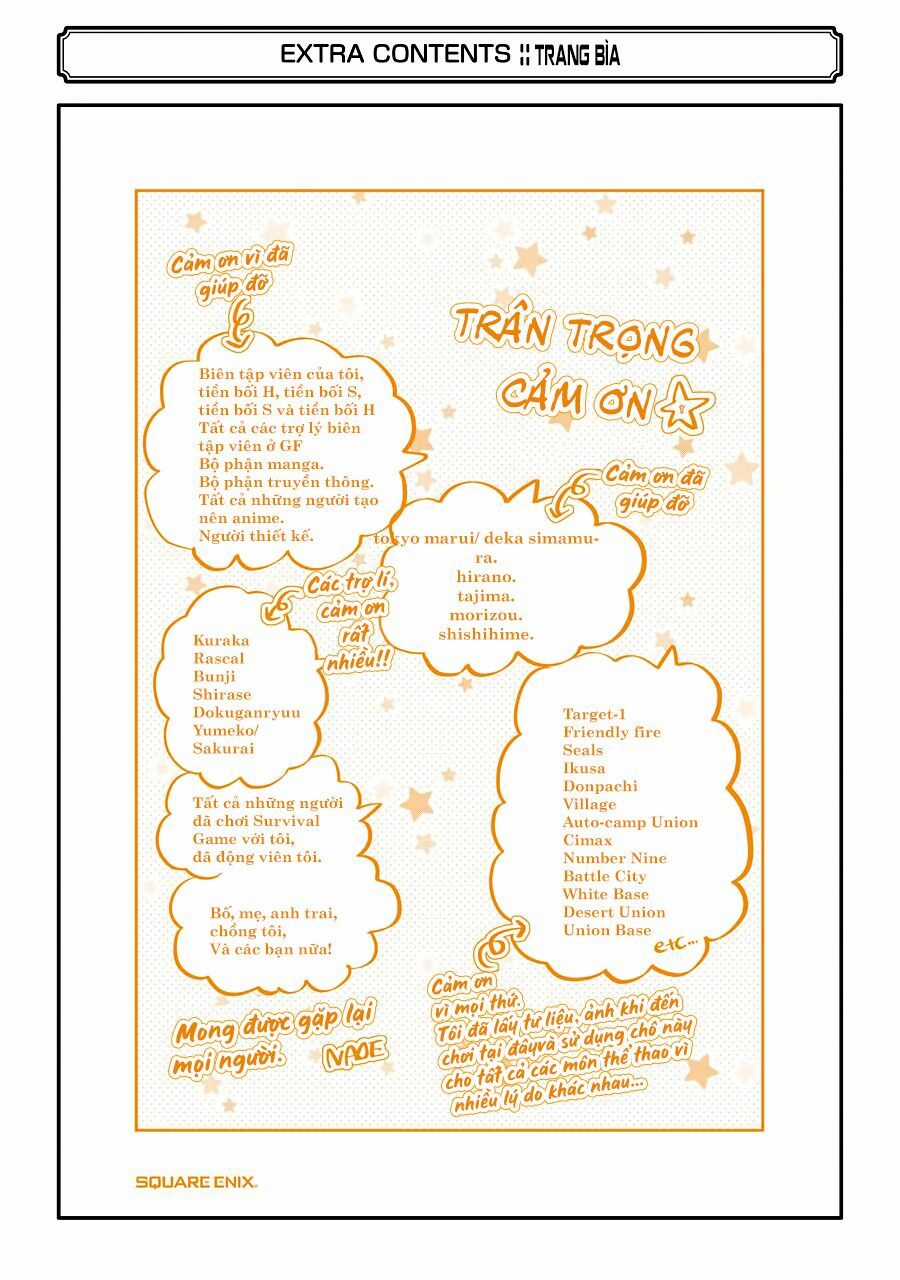 EXTRA CONTENTS :: TRANG BÌA
Cảm ơn vì đã
giúp đỡ
TRÂN TRỌNG
CẢM ƠN
Biên tập viên của tôi,
tiền bối H, tiền bối S,
tiền bối S và tiền bối H
Tất cả các trợ lý biên
tập viên ở GF
Bộ phận manga.
Bộ phận truyền thông.
Tất cả những người tạo
nên anime.
Người thiết kế.
Cảm ơn đã
giúp đỡ
tokyo marui/ deka simamu-
ra.
hirano.
tajima.
morizou.
shishihime.
Các trợ lí,
cảm ơn
rất
nhiều!!
Kuraka
Rascal
Bunji
Shirase
Dokuganryuu
Yumeko/
Sakurai
Target-1
Friendly fire
Seals
Ikusa
Donpachi
Village
Auto-camp Union
Cimax
Number Nine
Battle City
White Base
Desert Union
Union Base
etc...
Tất cả những người
đã chơi Survival
Game với tôi,
đã động viên tôi.
Bố, mẹ, anh trai,
chồng tôi,
Và các bạn nữa!
Cảm ơn
vì mọi thứ.
Tôi đã lấy tư liệu, ảnh khi đến
chơi tại đâyvà sử dụng chỗ này
cho tất cả các môn thể thao vì
nhiều lý do khác nhau...
Mong được gặp lại
mọi người.
NAOE
SQUARE ENIX.